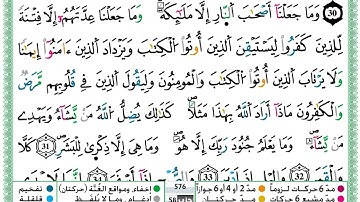 30 وَمَا جَعَلْنَا أَصْحَٰبَ النَّارِ إِلَّا مَلَٰٓئِكَةً وَمَا جَعَلْنَا عِدَّتَهُمْ إِلَّا فِتْنَةً
لِّلَّذِينَ كَفَرُوا لِيَسْتَيْقِنَ الَّذِينَ أُوتُوا الْكِتَٰبَ وَيَزْدَادَ الَّذِينَ ءَامَنُوا إِيمَٰنًا
وَلَا يَرْتَابَ الَّذِينَ أُوتُوا الْكِتَٰبَ وَالْمُؤْمِنُونَ وَلِيَقُولَ الَّذِينَ فِي قُلُوبِهِم مَّرَضٌ
وَالْكَٰفِرُونَ مَاذَا أَرَادَ اللَّهُ بِهَٰذَا مَثَلًا كَذَٰلِكَ يُضِلُّ اللَّهُ مَن يَشَآءُ وَيَهْدِي
مَن يَشَآءُ وَمَا يَعْلَمُ جُنُودَ رَبِّكَ إِلَّا هُوَ وَمَا هِيَ إِلَّا ذِكْرَىٰ لِلْبَشَرِ 31 كَلَّا
مدّ 6 حركات لزوماً مدّ 2 أو 4 أو 6 جوازاً 576 إخفاء، ومواقع الغُنَّة (حركتان) تفخيم
مدّ حركتان إدغام، وما لا يُلفَظ قلقلة